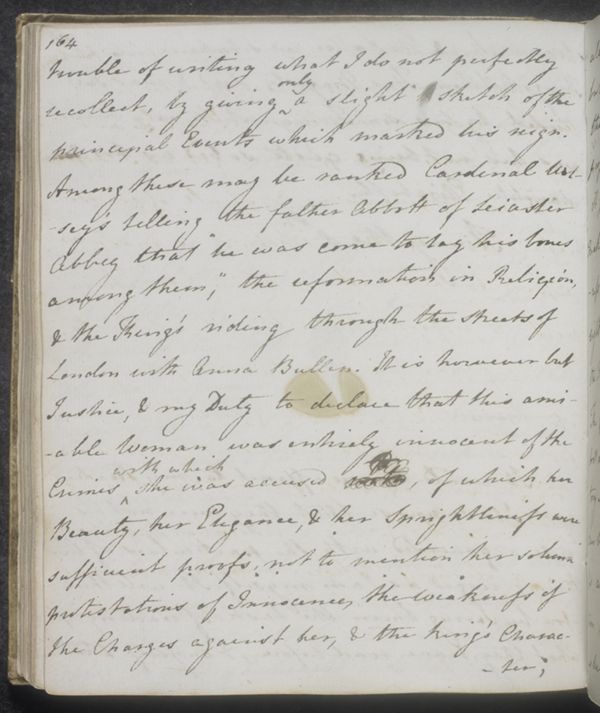 164
trouble of writing what I do not perfectly
only
recollect, by giving a slight sketch of the
principal Events which marked his reign.
Among these may be ranked Cardinal Wol-
-sey's telling the father Abbott of Leicester
Abbey that "he was come to lay his bones
among them," the reformation in Religion,
& the King's riding through the streets of
London with Anna Bullen. It is however but
Justice, & my Duty to declare that this ami-
-able Woman was entirely innocent of the
with which
Crimes she was accused, of which her
Beauty, her Elegance, & her Sprightliness were
sufficient proofs, not to mention her solemn
protestations of Innocence, the weakness of
the Charges against her, & the King's Charac-
-ter;